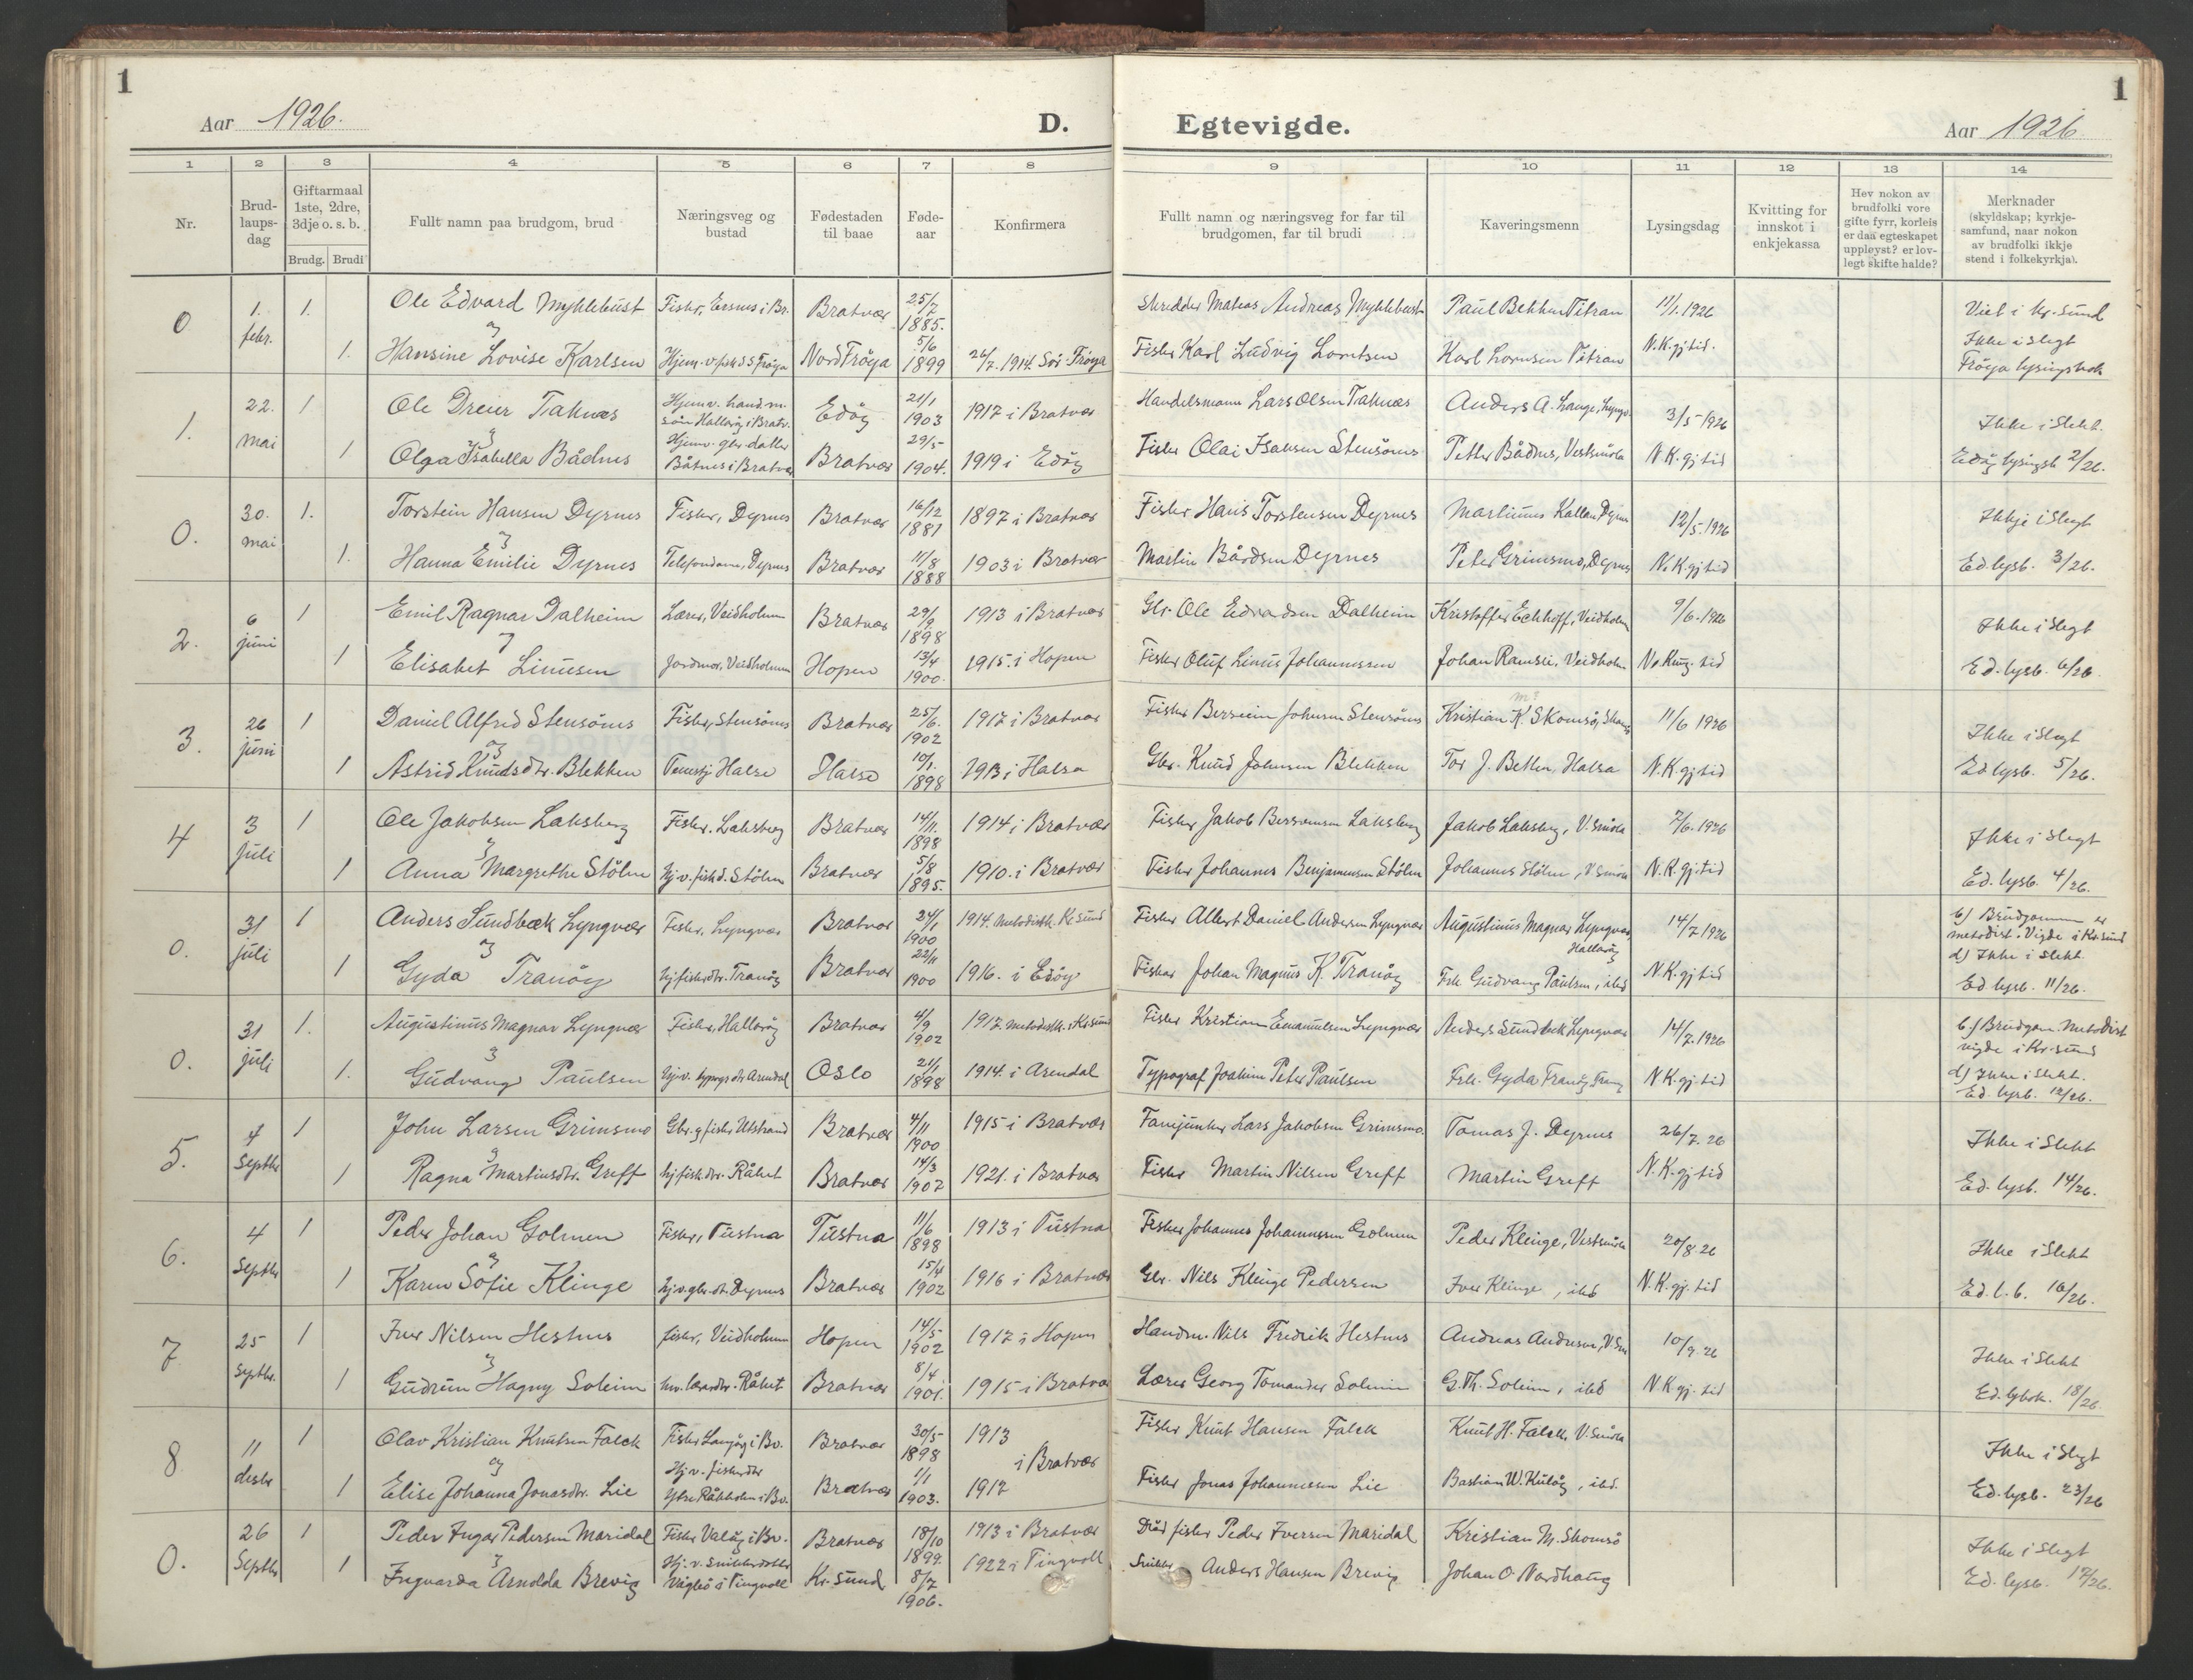 1
Aar 1926.
D.
Egtevigde.
Aar 1926
1
1 2 3 4 5 6 7 8 9 10 11 12 13 14
Nr.
Brud-
laups-
dag
Giftarmaal
1ste, 2dre,
3dje o. s. b.
Brudg. Brudi
Fullt namn paa brudgom, brud
Næringsveg og
bustad
Fødestaden
til baae
Føde-
aar
Konfirmera
Fullt namn og næringsveg for far til
brudgomen, far til brudi
Kaveringsmenn
Lysingsdag
Kvitting for
innskot i
enkjekassa
Hev nokon av
brudfolki vore
gifte fyrr, korleis
er daa egteskapet
uppløyst? er lov-
legt skifte halde?
Merknader
(skyldskap; kyrkje-
samfund, naar nokon
av brudfolki ikkje
stend i folkekyrkja).
0 1. febr. 1. Ole Edvard Myklebust Bratvær 25/7 1885. Skredder Mateas Andreas Myklebust Paul Bekken Titran 11/1.1926 Viet i Kr.sund
& 1. Hansine Lovise Karlsen Nord Frøya 5/6 1899 26/7.1914. Sør Frøya Fisker Karl Ludvig Lorntsen Karl Lorntsen Titran N.K.gj.tid. Ikke i slegt
Frøya lysingsbok
1. 22. mai 1 Ole Dreier Taknæs Hjemv. handm. søn Hallarøy i Bratv. Edøy 21/1 1903 1917 i Bratvær Handelsmann Lars Olsen Taknæs Anders A. Lange, Lyngv. 3/5 1926 Ikke i Slekt.
& 1 Olga Isabella Bådnes Hjemv. gbr. datter Båtnes i Bratvær Bratvær 29/5 1904. 1919 i Edøy Fisker Olai Isaksen Stensønes Petter Bådnes, Vestsmøla N.K.gj.tid Edøy lysingsb 2/26.
0. 30. mai 1. Torstein Hansen Dyrnes Fisker, Dyrnes Bratvær 16/12 1881 1897 i Bratvær Fisker Hans Torstensen Dyrnes Martinus Kallan Dyrnes 12/5.1926 Ikkje i Slegt
& 1. Hanna Emilie Dyrnes Telefondame, Dyrnes Bratvær 11/8 1888 1903 i Bratvær Martin Bårdsen Dyrnes Peter Grimsmo, Dyrnes N.K.gj.tid Ed.lysb. 3/26.
2. 6 juni 1 Emil Ragnar Dalheim Lærer, Veidholmen Bratvær 29/9. 1898 1913 i Bratvær Gbr. Ole Edvardsen Dalheim Kristoffer Eckhoff, Veidholm 9/6.1926 Ikke i Slegt
& 1 Elisabet Linusen Jordmor, Veidholmen Hopen 13/4 1900. 1915. i Hopen Fisker Oluf Linus Johannessen Johan Ramsli, Veidholm Ed. lysb. 6/26.
3. 26 juni 1 Daniel Alfred Stensønes Fisker, Stensønes Bratvær 25/6. 1902 1917 i Bratvær Fisker Berseim Johnsen Stensønes Kristian K. Skomsø, 11/6 1926 Ikke i Slegt
& 1 Astrid Knudsdtr. Blekken Tenestj. Halse Halse 10/1. 1898 1913 i Halsa Gbr. Knud Johnsen Blekken Tor J. Betten, Halsa N.K.gj.tid Ed lysb. 5/26.
4 3 juli 1 Ole Jakobsen Laksberg Fisker. Laksberg Bratvær 14/11. 1898 1914 i Bratvær Fisker Jakob Laksberg Jakob Laksberg, V.Smøla 7/6.1926 Ikke i Slegt
& 1 Anna Margrethe Stølen Hj.v. fiskd. Stølen Bratvær 5/8 1895. 1910. i Bratvær Fisker Johannes Benjaminsen Stølen Johannes Stølen, V Smøla N.K.gj.tid Ed. lysb. 4/26.
0. 31 juli 1 Anders Sundbæk Lyngvær Fisker, Lyngvær Bratvær 24/1 1900 1914. Metodistk. Kr.sund Fisker Albert Daniel Andersen Lyngvær Augustinus Magnar Lyngvær, Hallarøy 14/7 1926 b) Brudgommen er
metodist. Vigde i Kr.sund
d) Ikke i slekt
& 1 Gyda Tranøy Hj.fiskerdtr. Tranøy Bratvær 22/11 1900 1916. i Edøy Fisker Johan Magnus K. Tranøy Frk. Gudvang Paulsen, ibid N.K.gj.tid Ed lysb. 11/26.
0. 31 juli 1. Augustinus Magnar Lyngvær Fisker, Hallarøy Bratvær 4/9 1902 1917. Metodistk. i Kr.sund Fisker Kristian Emanuelsen Lyngvær Anders Sundbæk Lyngvær 14/7.1926 b.) Brudgom Metodist
vigde i Kr.sund
& 1. Gudvang Paulsen Hj.v. typogr.dtr Arendal Oslo 21/1 1898 1914. i Arendal Typograf Joakim Peter Paulsen Frk. Gyda Tranøy, N.K.gj.tid d) Ikke i slekt.
Ed. lysb. 12/26.
5. 4 Septbr 1 John Larsen Grimsmo Gbr. og fisker Utstrand Bratvær 4/11 1900 1915 i Bratvær Fanejunker Lars Jakobsen Grimsmo. Tomas J. Dyrnes 26/7.26 Ikke i Slekt
& 1 Ragna Martinsdtr. Greff Hj.fisk.dtr. Råket Bratvær 14/3 1907 1921. i Bratvær Fisker Martin Nilsen Greff Martin Greff N.K.gj.tid Ed. lysb. 14/26.
6. 4 Septbr 1 Peder Johan Golmen Fisker, Tustna Tustna 11/6 1898 1913 i Tustna Fisker Johannes Johannessen Golmen Peder Klinge, Vestsmøla 20/8 26 Ikke i Slekt
& 1 Karen Sofie Klinge Hj.v.gbr.dt. Dyrnes Bratvær 15/4 1902 1916 i Bratvær Gbr. Nils Klinge Pedersen Iver Klinge, ibid N.K.gj.tid Ed.l.b. 16/26.
7 25 Septbr. 1 Iver Nilsen Hestnes fisker, Veidholmen Hopen 14/5 1902 1917 i Hopen Handm. Nils Fredrik Hestnes Andreas Andresen, V.Sm 10/9.26 Ikke i Slekt
& 1 Gudrun Hagny Soleim Hv. lærerdtr. Råket Bratvær 8/4 1901. 1915 i Bratvær Lærer Georg Tomander Soleim G.Th. Soleim, ibid N.K.gj.tid Ed. lybok. 18/26
8 11 desbr 1 Olav Kristian Knutsen Falck Fisker Langøy i Bv. Bratvær 30/5 1898 1913 i Bratvær Fisker Knut Hansen Falck Knut H. Falck, V.Smøla Ikke i Slegt
& 1 Elise Johanna Jonasdtr. Lie Hj.v. fiskerdtr Ytre Råkholm i Bv. Bratvær 1/1 1903. 1917 Fisker Jonas Johannessen Lie Bastian W. Kuløy, ibid. Ed.lysb. 23/26
0. 26 Septbr 1 Peder Ingar Pedersen Maridal Fisker Valøy i Bv. Bratvær 18/10 1899. 1913 i Bratvær Død fisker Peder Iversen Maridal Kristian M. Skomsø Ikke i Slegt
& 1 Ingvarda Arnolda Brevig Hj.v. Snikkerdatter Vågbø i Tingvoll Kr.sund 8/7 1906. 1922 i Tingvoll Snikker Anders Hansen Brevig Johan O. Nordhaug Ed. lysb. 17/26.